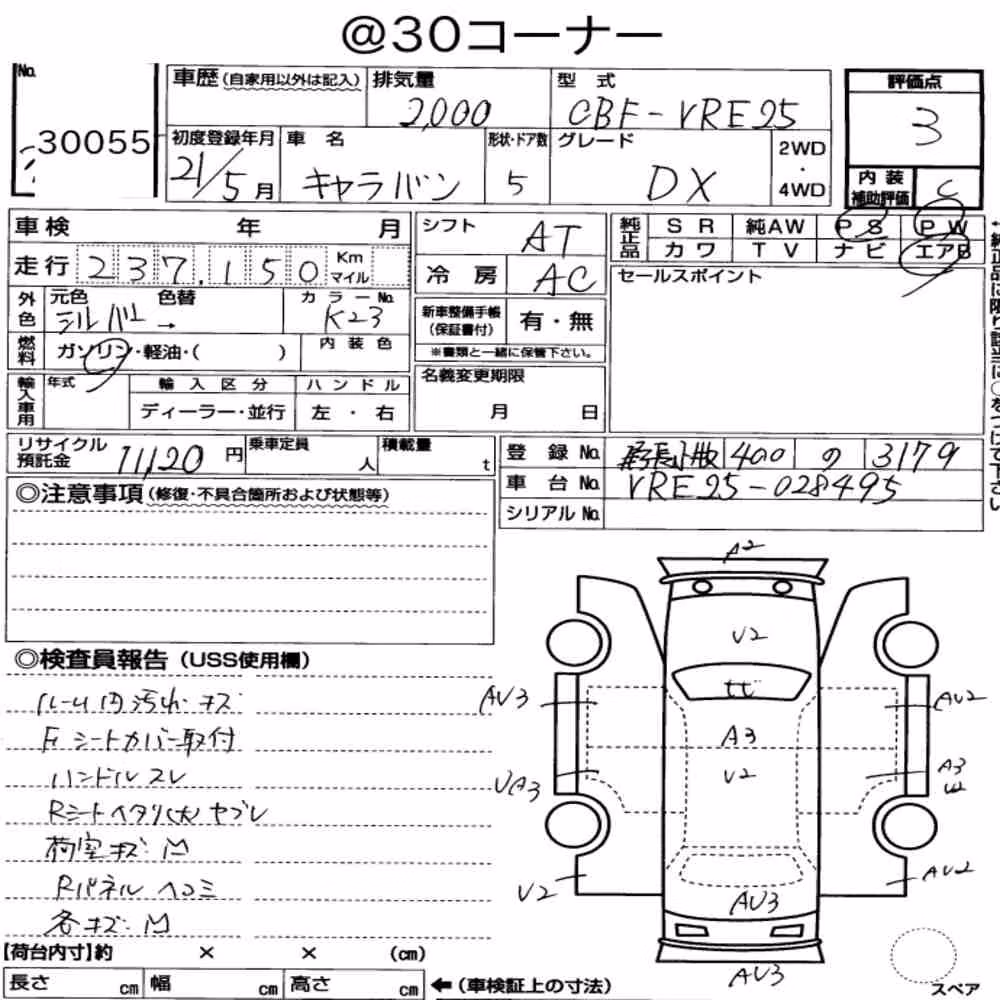 @30コーナー
No. 30055
車歴（自家用以外は記入） 排気量 2,000 型式 CBF-VRE25
評価点 3
内装補助評価 C
初度登録年月 21/5月 車名 キャラバン 形状・ドア数 5 グレード DX 2WD・4WD
車検 年 月
走行 237,150 Km マイル
シフト AT
冷房 AC
純正品 SR 純AW PS PW
カワ TV ナビ エアB
セールスポイント
外色 元色 シルバー 色替 → カラーNo. K23
燃料 ガソリン・軽油・( ) 内装色
新車整備手帳（保証書付） 有・無
※書類と一緒に保管下さい。
輸入車用 年式 輸入区分 ハンドル
ディーラー・並行 左・右
名義変更期限
月 日
リサイクル預託金 11,120円 乗車定員 人 積載量 t
登録No. 400 の 3179
車台No. VRE25-028495
シリアルNo.
◎注意事項（修復・不具合箇所および状態等）
◎検査員報告（USS使用欄）
ルーム内汚れ・キズ
Fシートカバー取付
ハンドルスレ
Rシートヘタリ(大) ヤブレ
荷室キズ・凹
Rパネル ヘコミ
各キズ・凹
A2
U2
トビ
AU3
AU2
A3
U2
UA3
A3
U2
AU2
AU3
AU3
スペア
【荷台内寸】約 × × (cm)
長さ cm 幅 cm 高さ cm ←（車検証上の寸法）